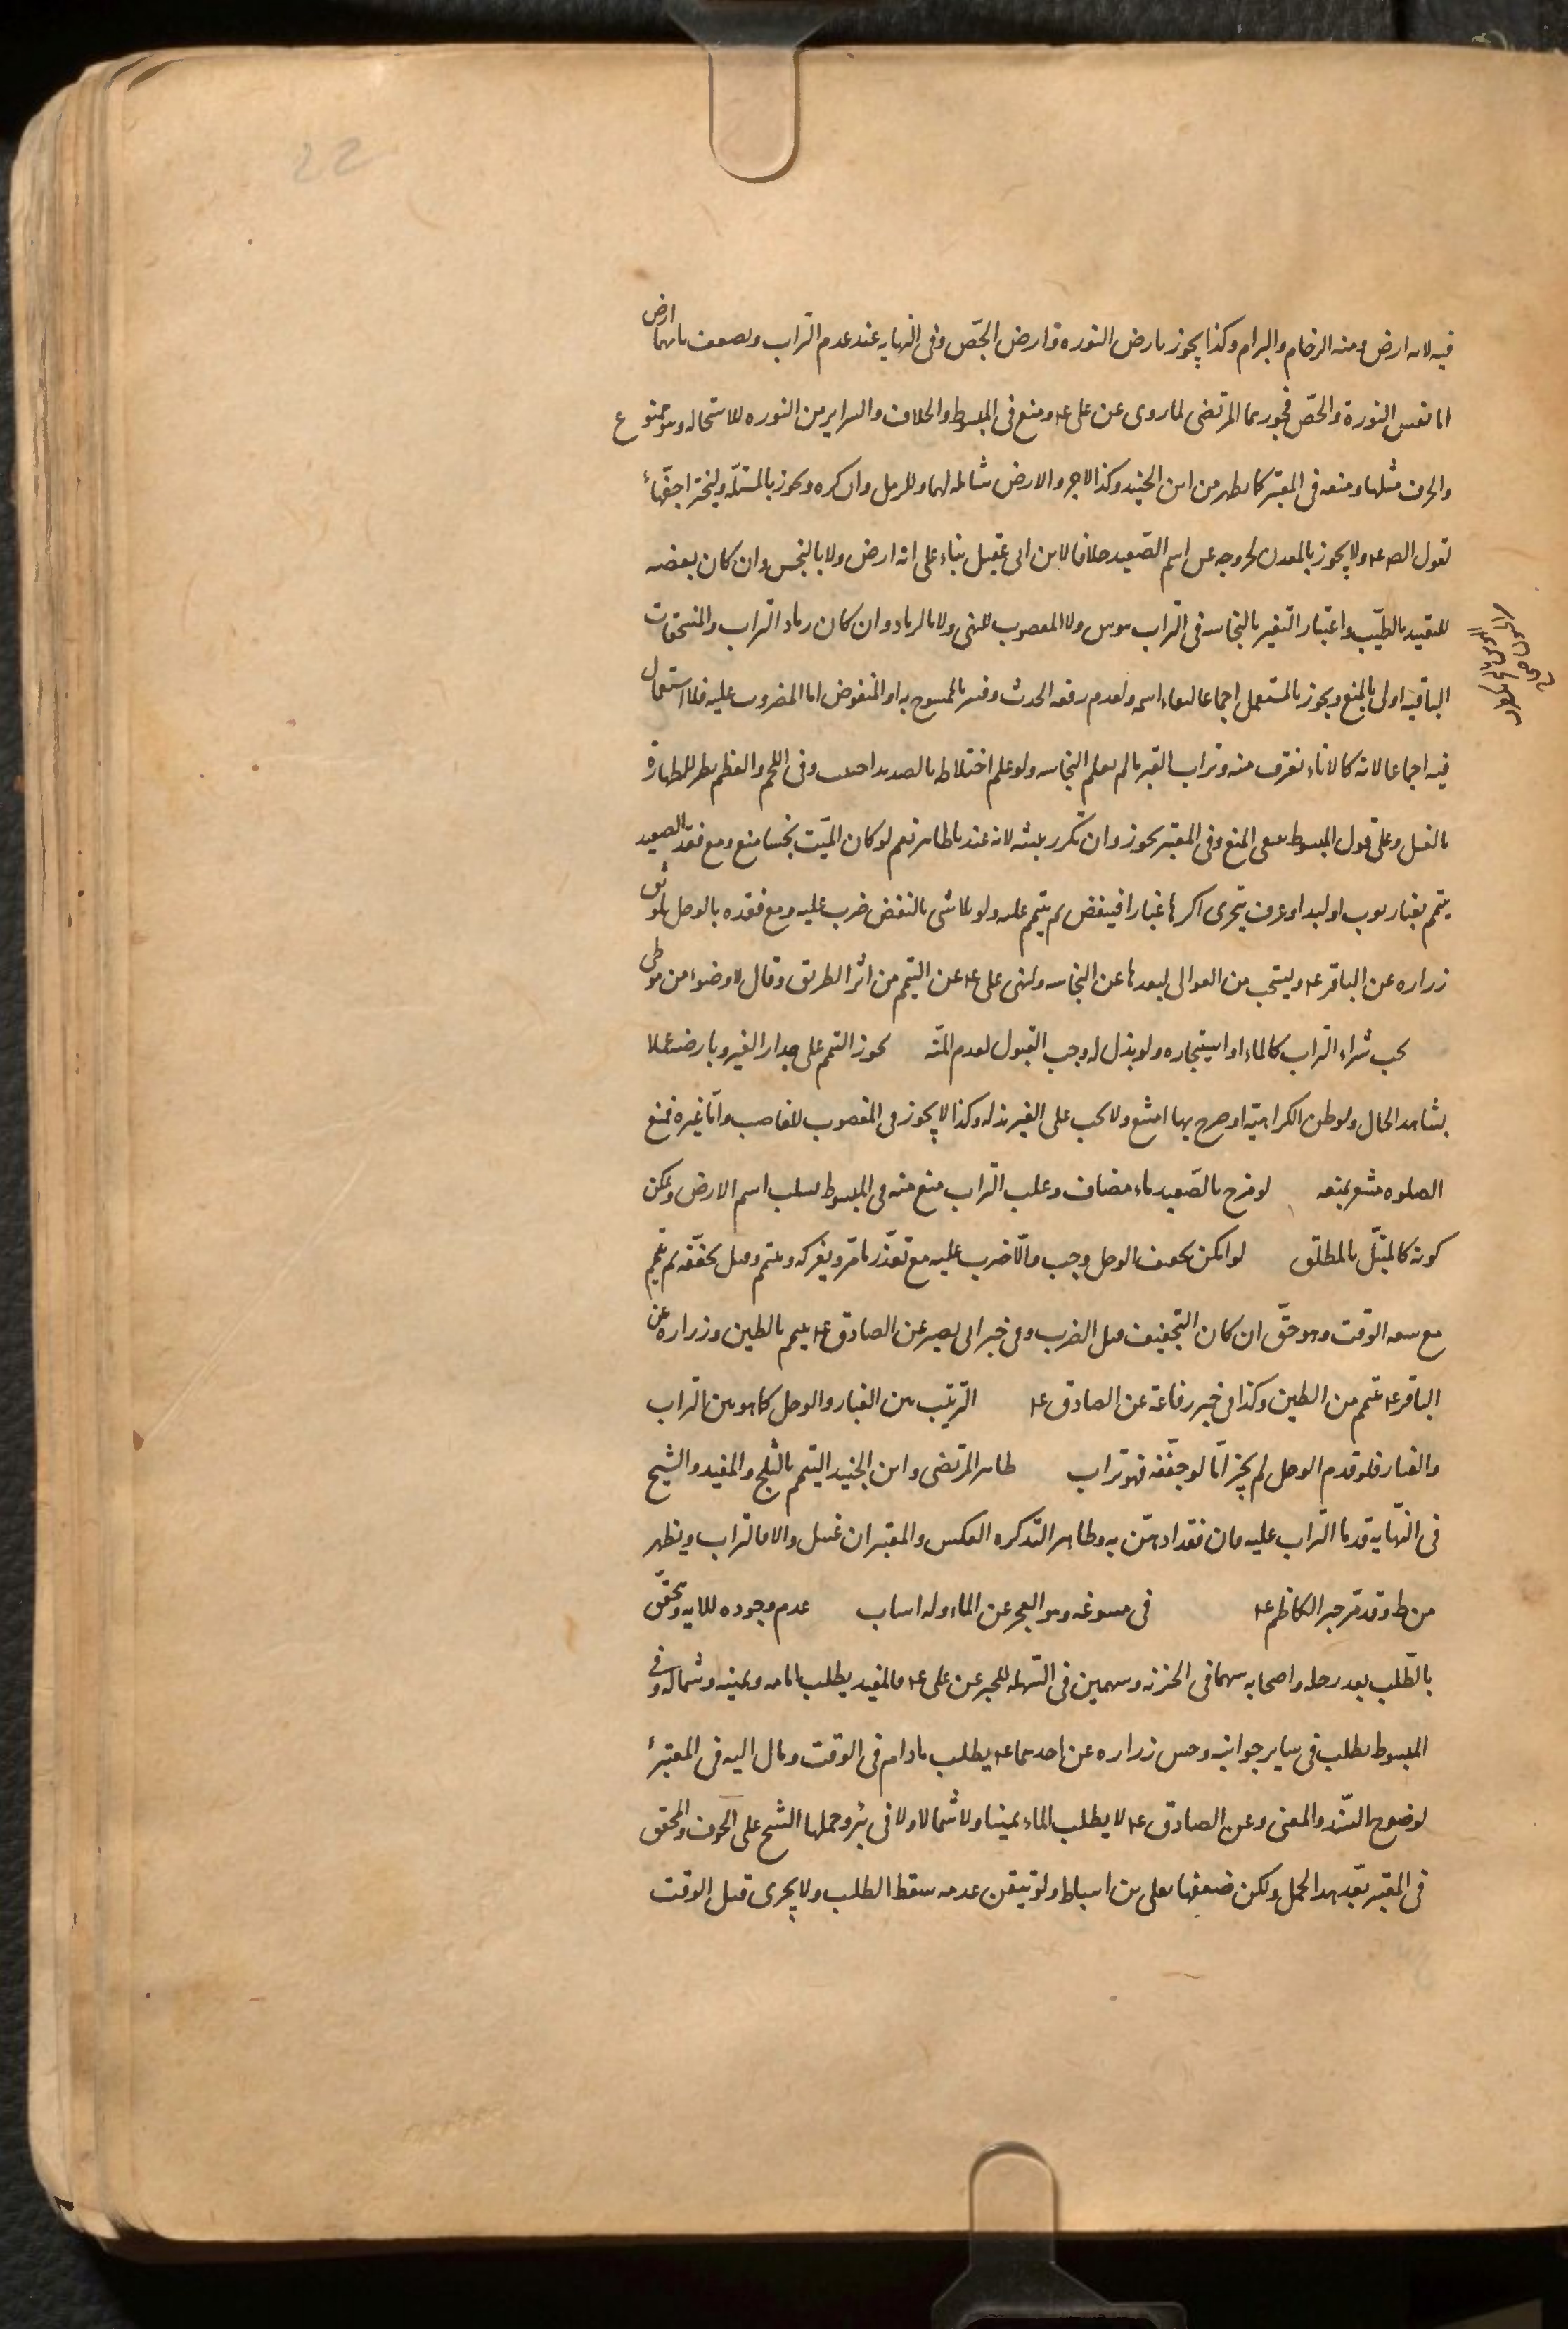 22
فيه لانه ارض ومنه الرخام والبرام وكذا يجوز بارض النورة وارض الجصّ وفى النهايه عند عدم التراب ويضعف بانهما ارض
اما نفس النورة والجصّ فجوزهما المرتضى لما روى عن على ع ومنع فى المبسوط والخلاف والسراير من النوره للاستحاله وهو ممنوع
والخزف مثلها ومنعه فى المعتبر كما يظهر من ابن الجنيد وكذا الاجر والارض شامله لهما وللرمل وان كره ويجوز بالمبتلّه وليتحرّ اجفّها
لقول الص ع ولا يجوز بالمعدن لخروجه عن اسم الصّعيد خلافا لابن ابى عقيل بناء على انه ارض ولا بالنجس وان كان بعضه
للتقييد بالطيّب واعتبار التغير بالنجاسه فى التراب هوس ولا المغصوب للنهى ولا بالرماد وان كان رماد التراب والمنسحقات
الباقيه اولى بالمنع ويجوز بالمستعمل اجماعا لبقاء اسمه ولعدم رفعه الحدث وفسر بالممسوح به او المنفوض اما المضروب عليه فلا استعمال
فيه اجماعا لانه كالاناء يغترف منه وتراب القبر ما لم يعلم النجاسه ولو علم اختلاطه بالصديد اجتنب وفى اللحم والعظم نظر للطهارة
بالغسل وعلى قول المبسوط ينبغى المنع وفى المعتبر يجوز وان تكرر نبشه لانه عندنا طاهر نعم لو كان الميّت نجسا منع ومع فقد الصعيد
يتيمم بغبار ثوب او لبد او عرف يتحرى اكرها غبارا فينفض ثم يتيمم عليه ولو تلاشى بالنفض ضرب عليه ومع فقده بالوحل لموثق
زراره عن الباقر ع ويستحب من العوالى لبعدها عن النجاسه ولنهى على ع عن التيمم من اثر الطريق وقال لا وضوء من موطى
يجب شراء التراب كالماء او استيجاره ولو بذل له وجب القبول لعدم المنّه يجوز التيمم على جدار الغير وبارضه عملا
بشاهد الحال ولو ظن الكراهيّه او صرح بها امتنع ولا يجب على الغير بذله وكذا لا يجوز فى المغصوب للغاصب وامّا غيره فمنع
الصلوه مشعر بمنعه لو مزج بالصّعيد ماء مضاف وغلب التراب منع منه فى المبسوط لسلب اسم الارض ويمكن
كونه كالمبتلّ بالمطلق لو امكن تجفيف الوحل وجب والّا ضرب عليه مع تعذّر ما مرّ ويفركه ويتيمم وقيل يجفّفه ثم يتيمم
مع سعه الوقت وهو حقّ ان كان التجفيف قبل الضرب وفى خبر ابى بصير عن الصادق ع يتيمم بالطين وزراره عن
الباقر ع يتيمم من الطين وكذا فى خبر رفاعة عن الصادق ع الترتيب بين الغبار والوحل كما هو بين التراب
والغبار فلو قدم الوحل لم يجز امّا لو جفّفه فهو تراب ظاهر المرتضى وابن الجنيد التيمم بالثلج والمفيد والشيخ
فى النهايه قدما التراب عليه فان فقد ادهّن به وظاهر التذكره العكس والمعتبر ان غسل والا فالتراب ويظهر
من ط وقد مرّ خبر الكاظم ع فى مسوغه وهو العجز عن الماء وله اسباب عدم وجوده للايه ويتحقق
بالطّلب بعد رحله واصحابه سهما فى الحزنه وسهمين فى السّهله للخبر عن على ع فالمفيد يطلب امامه ويمينه وشماله وفى
المبسوط يطلب فى ساير جوانبه وحسن زراره عن احدهما ع يطلب مادام فى الوقت ومال اليه فى المعتبر
لوضوح السّند والمعنى وعن الصادق ع لا يطلب الماء يمينا ولا شمالا ولا فى بئر وحملها الشيخ على الخوف والمحقق
فى المعتبر بعّد هذا الحمل ولكن ضعفها بعلى بن اسباط ولو تيقن عدمه سقط الطلب ولا يجزى قبل الوقت